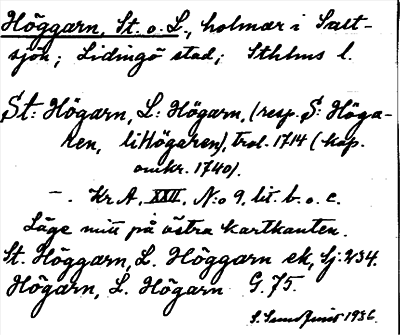 Höggarn, St. o. L., holmar i Salt-
sjön; Lidingö stad; Sthlms l.
St: Högarn, L: Högarn, (resp. S: Höga-
ren, lilHögaren), trol. 1714 (kop.
omkr. 1740).
—. Kr A, XXII, N:o 9, lit. b. o. c.
Läge mitt på östra kartkanten.
St. Höggarn, L. Höggarn ek, Sj. 234.
Högarn, L. Högarn G. 75.
1936.